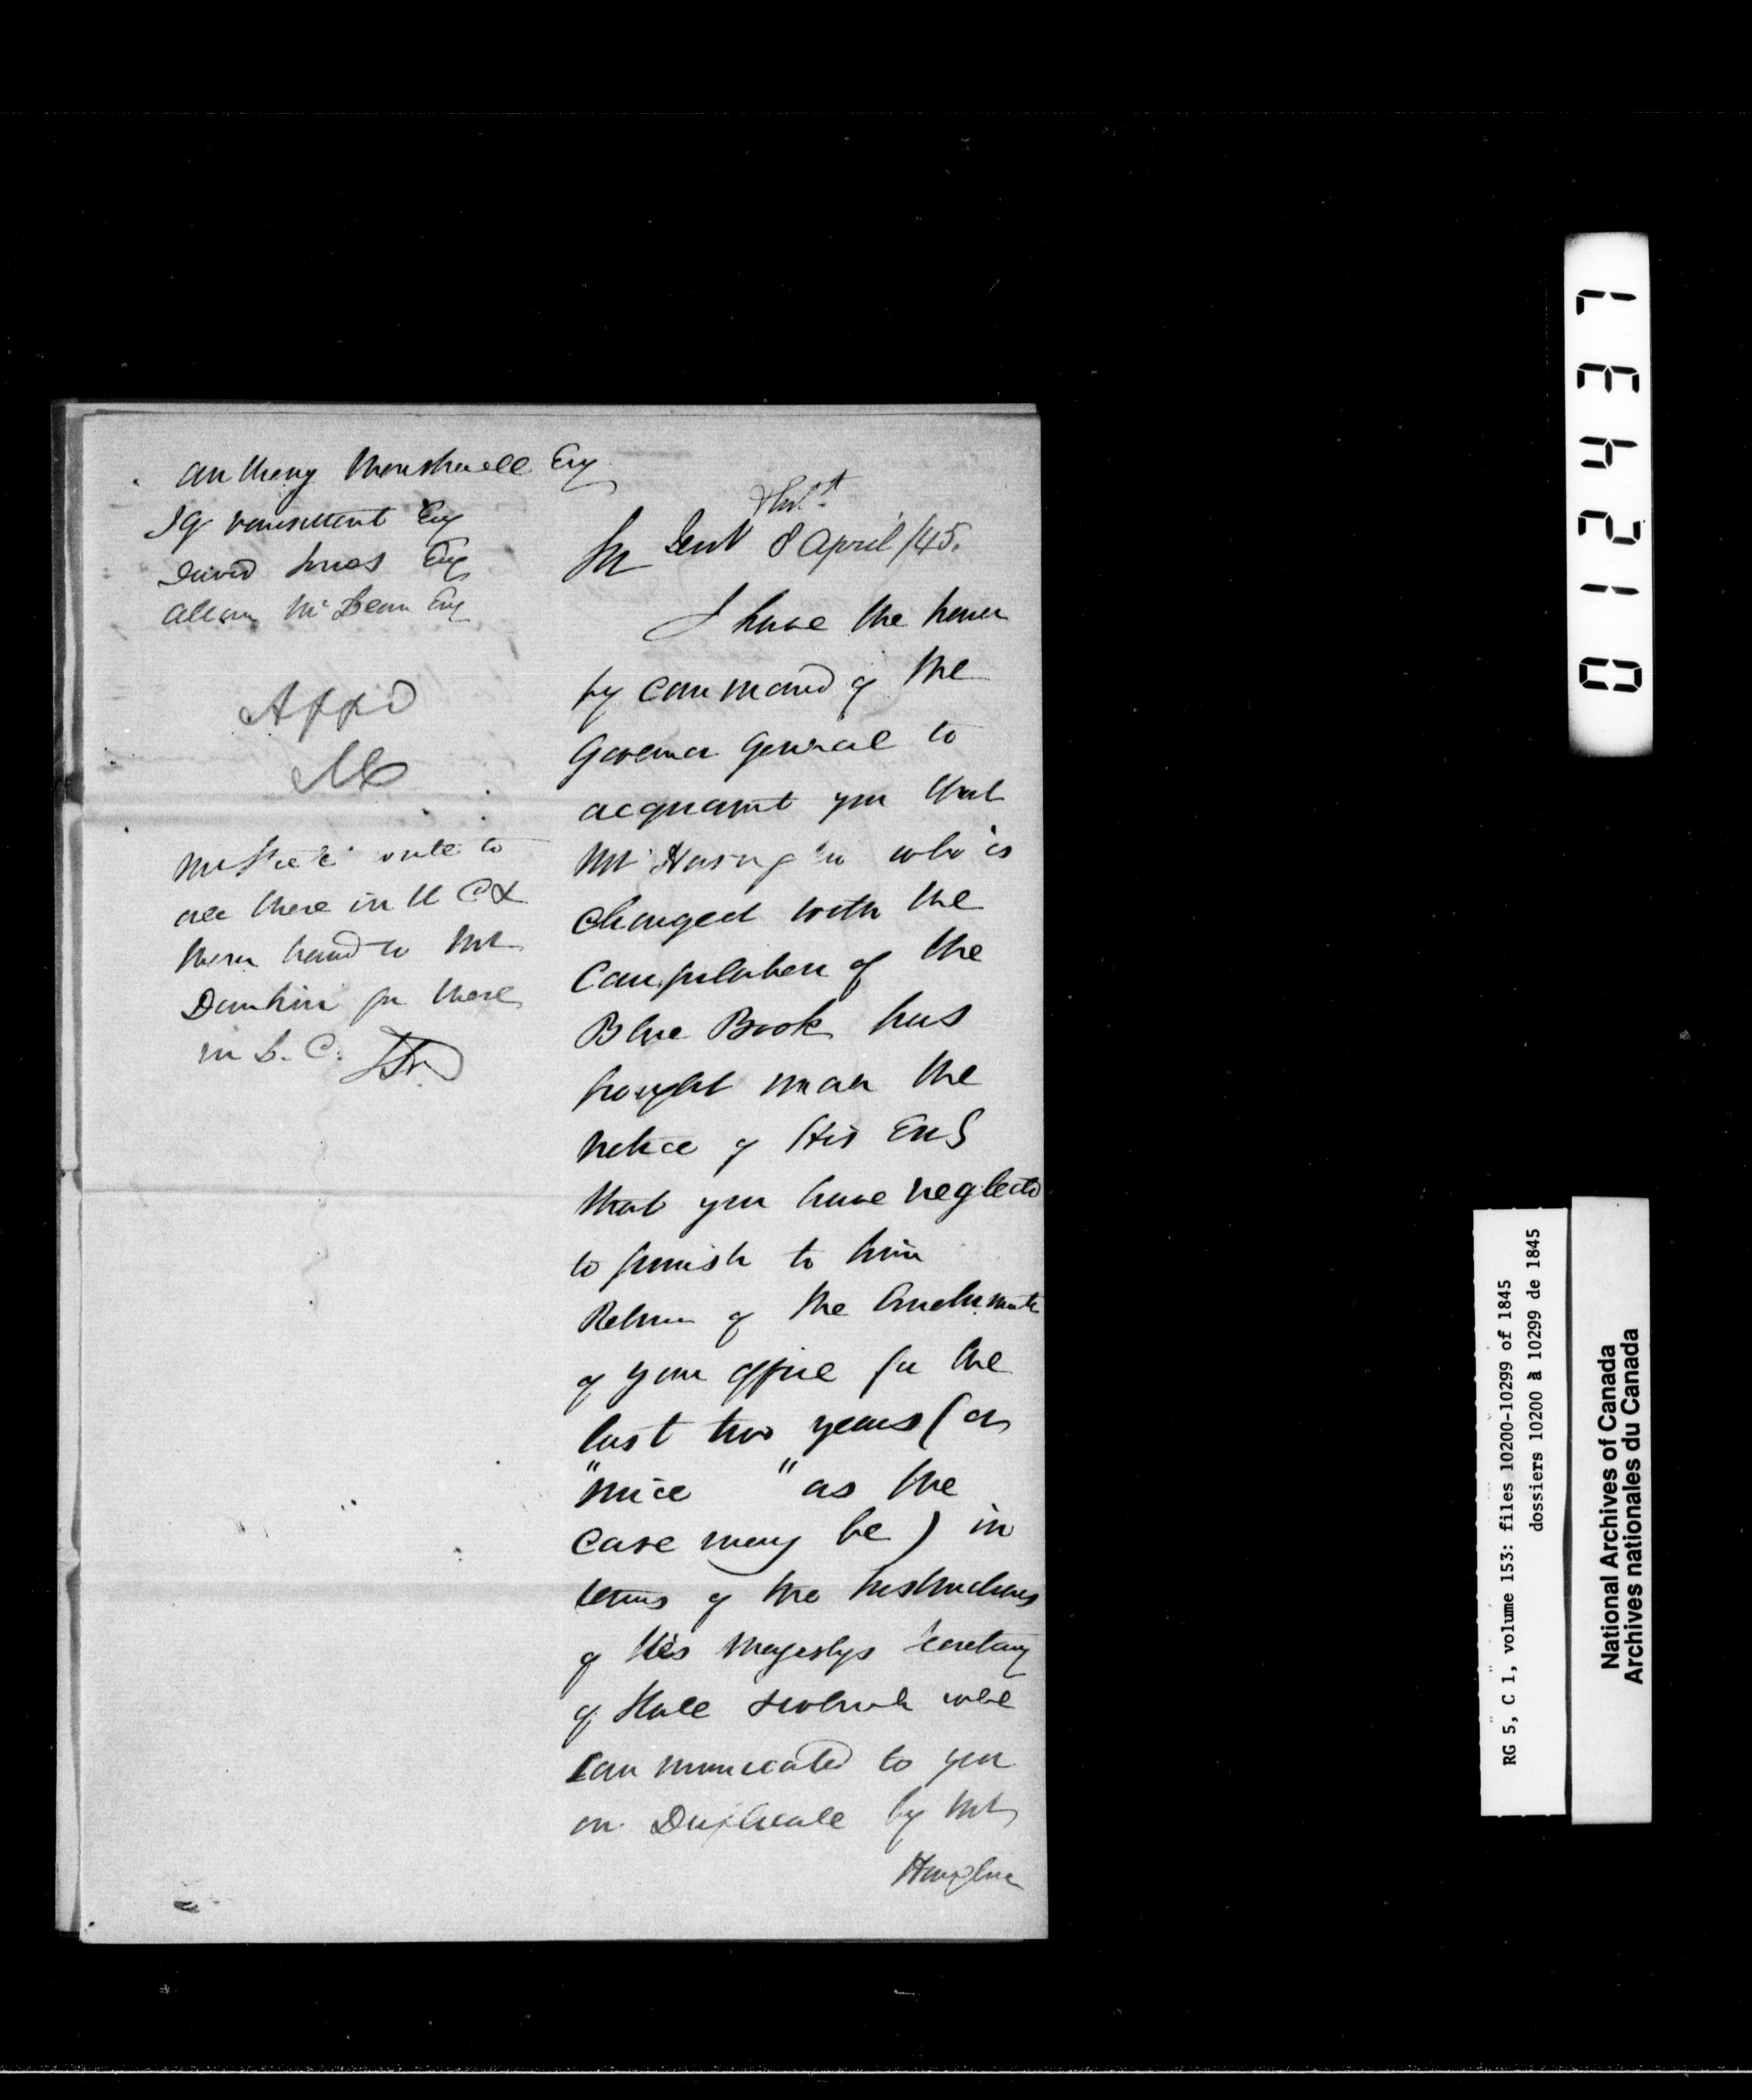 Anthony Manahan Esq
David Jones Esq
Allan McLean Esq
Appd
write to
all these in U C &
then hand to Mr
Dunkin for those
in L. C.
Sir Sent 8 April /45.
I have the honor
by command of the
Governor General to
acquaint you that
Mr Harington who is
charged with the
Compilation of the
Blue Book has
brought under the
notice of His Ex
that you have neglected
to furnish to him
Return of the Emoluments
of your office for the
last two years (or
"once " as the
case may be) in
terms of the Instructions
of Her Majestys Secretary
of State & which were
Communicated to you
in Duplicate by Mr
Harington
0 1 2 4 3 7
RG 5, C 1, volume 153: files 10200-10299 of 1845
dossiers 10200 à 10299 de 1845
National Archives of Canada
Archives nationales du Canada